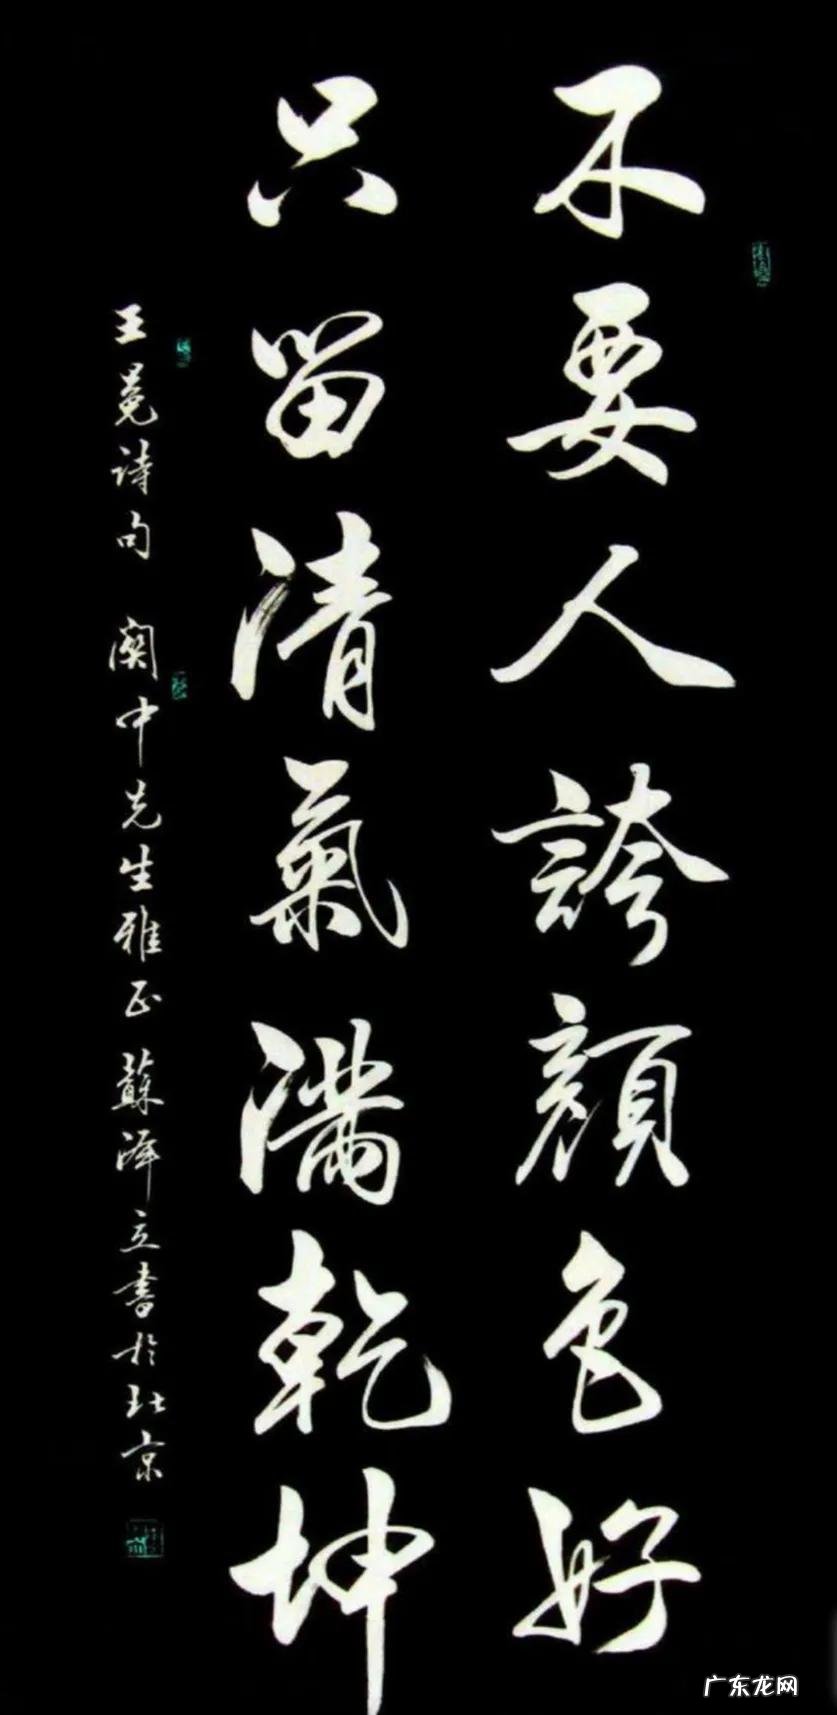 不要人誇顔色好
只留清氣滿乾坤
王冕诗句 関中先生雅正 蘇澤立書於北京
广东龙网